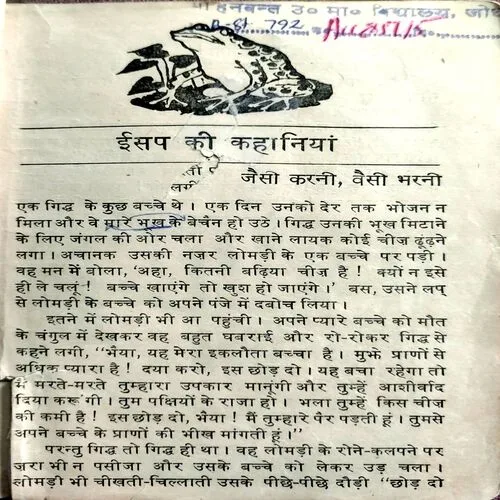 उ० मा० विद्यालय, जो
792
ईसप की कहानियां
जैसी करनी, वैसी भरनी
एक गिद्ध के कुछ बच्चे थे। एक दिन उनको देर तक भोजन न
मिला और वे मारे भूख के बेचैन हो उठे। गिद्ध उनकी भूख मिटाने
के लिए जंगल की ओर चला और खाने लायक कोई चीज ढूंढ़ने
लगा। अचानक उसकी नजर लोमड़ी के एक बच्चे पर पड़ी।
वह मन में बोला, 'अहा, कितनी बढ़िया चीज है! क्यों न इसे
ही ले चलूं! बच्चे खाएंगे तो खुश हो जाएंगे।' बस, उसने लप
से लोमड़ी के बच्चे को अपने पंजे में दबोच लिया।
इतने में लोमड़ी भी आ पहुंची। अपने प्यारे बच्चे को मौत
के चंगुल में देखकर वह बहुत घबराई और रो-रोकर गिद्ध से
कहने लगी, "भैया, यह मेरा इकलौता बच्चा है। मुझे प्राणों से
अधिक प्यारा है! दया करो, इस छोड़ दो। यह बचा रहेगा तो
मैं मरते-मरते तुम्हारा उपकार मानूंगी और तुम्हें आशीर्वाद
दिया करूंगी। तुम पक्षियों के राजा हो। भला तुम्हें किस चीज
की कमी है! इस छोड़ दो, भैया! मैं तुम्हारे पैर पड़ती हूं। तुमसे
अपने बच्चे के प्राणों की भीख मांगती हूं।"
परन्तु गिद्ध तो गिद्ध ही था। वह लोमड़ी के रोने-कलपने पर
ज़रा भी न पसीजा और उसके बच्चे को लेकर उड़ चला।
लोमड़ी भी चीखती-चिल्लाती उसके पीछे-पीछे दौड़ी "छोड़ दो